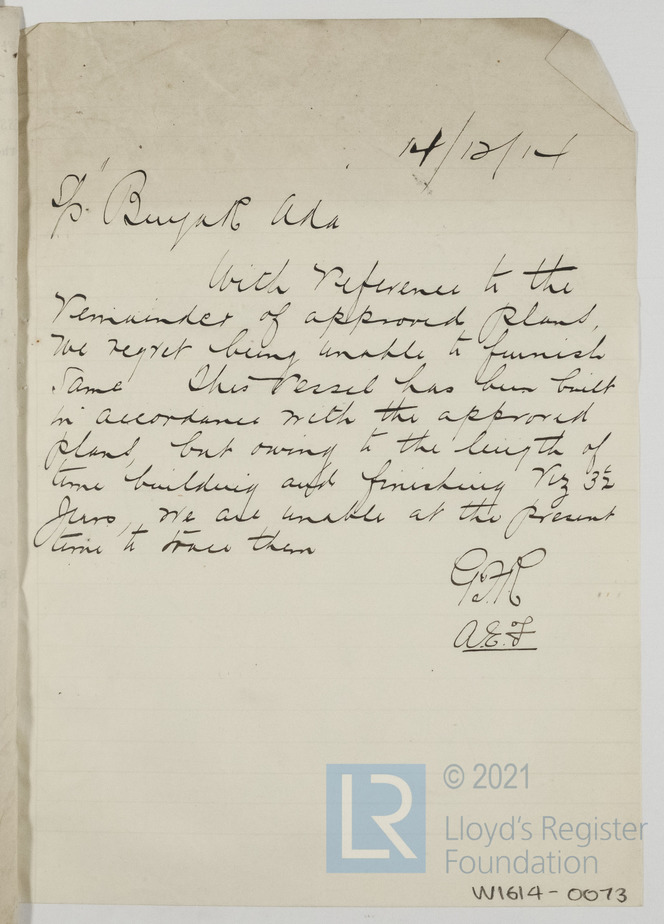 14/12/14
S/S Buyuk Ada
With reference to the
remainder of approved plans,
we regret being unable to furnish
same This vessel has been built
in accordance with the approved
plans, but owing to the length of
time building and finishing viz 3½
years, we are unable at the present
time to trace them
G.F.R
A.E.F
LR
© 2021
Lloyd's Register
Foundation
W1614-0073